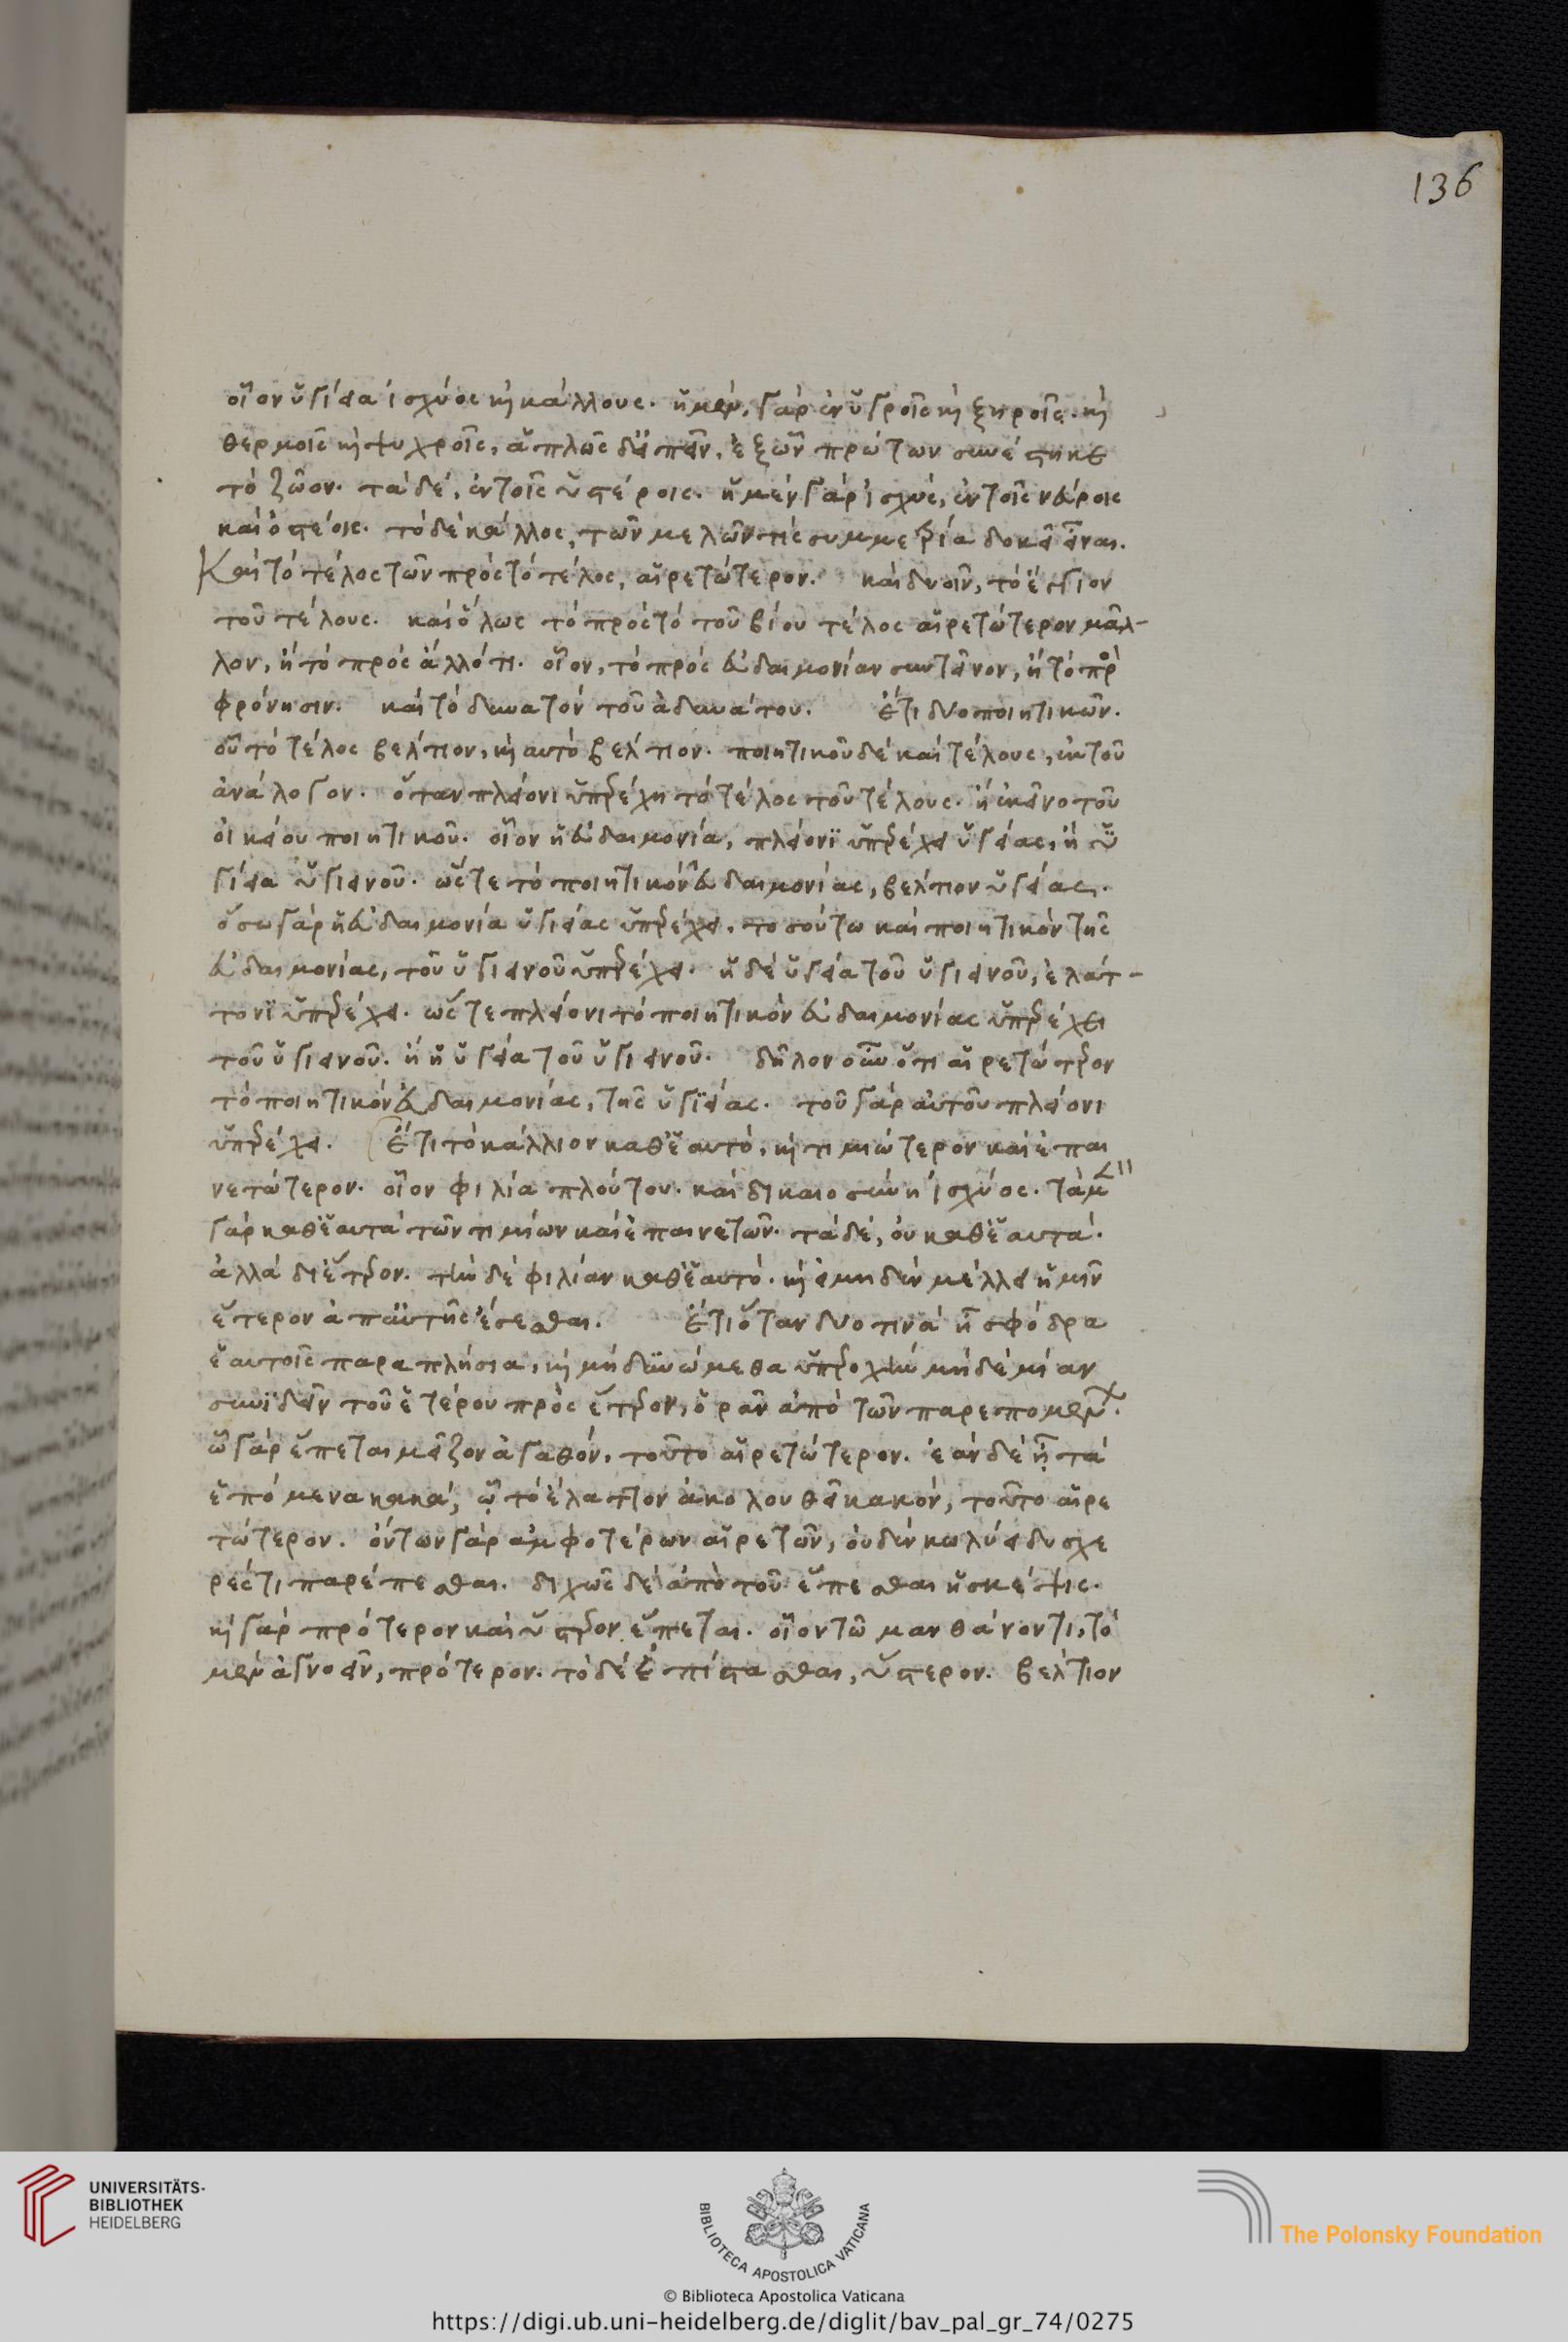 136
οἷον ὑγίεια ἰσχύος καὶ κάλλους. ἡ μὲν γὰρ ἐν ὑγροῖς καὶ ξηροῖς. καὶ
θερμοῖς καὶ ψυχροῖς, ἁπλῶς δ' εἰπεῖν, ἐξ ὧν πρώτων συνέστηκε
τὸ ζῶον. τὰ δέ, ἐν τοῖς ὑστέροις. ἡ μὲν γὰρ ἰσχύς, ἐν τοῖς νεύροις
καὶ ὀστέοις. τὸ δὲ κάλλος, τῶν μελῶν τὶς συμμετρία δοκεῖ εἶναι.
Καὶ τὸ τέλος τῶν πρὸς τὸ τέλος, αἱρετώτερον. καὶ δυοῖν, τὸ ἔγγιον
τοῦ τέλους. καὶ ὅλως τὸ πρὸς τὸ τοῦ βίου τέλος αἱρετώτερον μᾶλ-
λον, ἢ τὸ πρὸς ἄλλό τι. οἷον, τὸ πρὸς εὐδαιμονίαν συντεῖνον, ἢ τὸ πρὸς
φρόνησιν. καὶ τὸ δυνατὸν τοῦ ἀδυνάτου. ἔτι δύο ποιητικῶν.
οὗ τὸ τέλος βέλτιον, καὶ αυτὸ βέλτιον. ποιητικοῦ δὲ καὶ τέλους, ἐκ τοῦ
ἀνάλογον. ὅταν πλείονι ὑπερέχη τὸ τέλος τοῦ τέλους. ἢ ἐκεῖνο τοῦ
οἰκείου ποιητικοῦ. οἷον ἡ εὐδαιμονία, πλείονϊ ὑπερέχει ὑγείας, ἢ ὑ
γίεια ὑγιεινοῦ. ὥστε τὸ ποιητικὸν εὐδαιμονίας, βέλτιον ὑγείας.
ὅσω γὰρ ἡ εὐδαιμονία ὑγιείας ὑπερέχει. τοσούτω καὶ ποιητικὸν τῆς
εὐδαιμονίας, τοῦ ὑγιεινοῦ ὑπερέχει. ἡ δὲ ὑγεία τοῦ ὑγιεινοῦ, ἐλάτ-
τονϊ ὑπερέχει. ὥστε πλείονι τὸ ποιητικὸν εὐδαιμονίας ὑπερέχει
τοῦ ὑγιεινοῦ. ἢ ἡ ὑγεία τοῦ ὑγιεινοῦ. δῆλον οὖν ὅτι αἱρετώτερον
τὸ ποιητικὸν εὐδαιμονίας, τῆς ὑγϊείας. τοῦ γὰρ αὐτοῦ πλείονι
ὑπερέχει. ἔτι τὸ κάλλιον καθ' ἑαυτό, καὶ τιμιώτερον καὶ ἐπαι
νετώτερον. οἷον φιλία πλούτου. καὶ δικαιοσύνη ἰσχύος. τὰ μὲν
γὰρ καθ' ἑαυτὰ τῶν τιμίων καὶ ἐπαινετῶν. τὰ δέ, οὐ καθ' ἑαυτά.
ἀλλὰ δι' ἕτερον. τὴν δὲ φιλίαν καθ' ἑαυτό. καὶ εἰ μηδὲν μέλλει ἡμῖν
ἕτερον ἀπ' αὐτῆς ἔσεσθαι. ἔτι ὅταν δύο τινὰ ἦ σφόδρα
ἑαυτοῖς παραπλήσια, καὶ μὴ δυνώμεθα ὑπεροχὴν μηδὲμίαν
συνϊδεῖν τοῦ ἑτέρου πρὸς ἕτερον, ὁρᾶν ἀπὸ τῶν παρεπομένων.
ὧ γὰρ ἕπεται μεῖζον ἀγαθόν, τοῦτο αἱρετώτερον. ἐὰν δὲ ᾖ τὰ
ἑπόμενα κακά, ᾧ τὸ ἔλαττον ἀκολουθεῖ κακόν, τοῦτο αἱρε
τώτερον. ὄντων γὰρ ἀμφοτέρων αἱρετῶν, οὐδὲν κωλύει δυσχε
ρές τι παρέπεσθαι. διχῶς δὲ ἀπὸ τοῦ ἕπεσθαι ἡ σκέψις.
καὶ γὰρ πρότερον καὶ ὕστερον ἕπεται. οἷον τῶ μανθάνοντι, τὸ
μὲν ἀγνοεῖν, πρότερον. τὸ δὲ ἐπίστασθαι, ὕστερον. βέλτιον
UNIVERSITÄTS-
BIBLIOTHEK
HEIDELBERG
BIBLIOTECA APOSTOLICA VATICANA
The Polonsky Foundation
© Biblioteca Apostolica Vaticana
https://digi.ub.uni-heidelberg.de/diglit/bav_pal_gr_74/0275